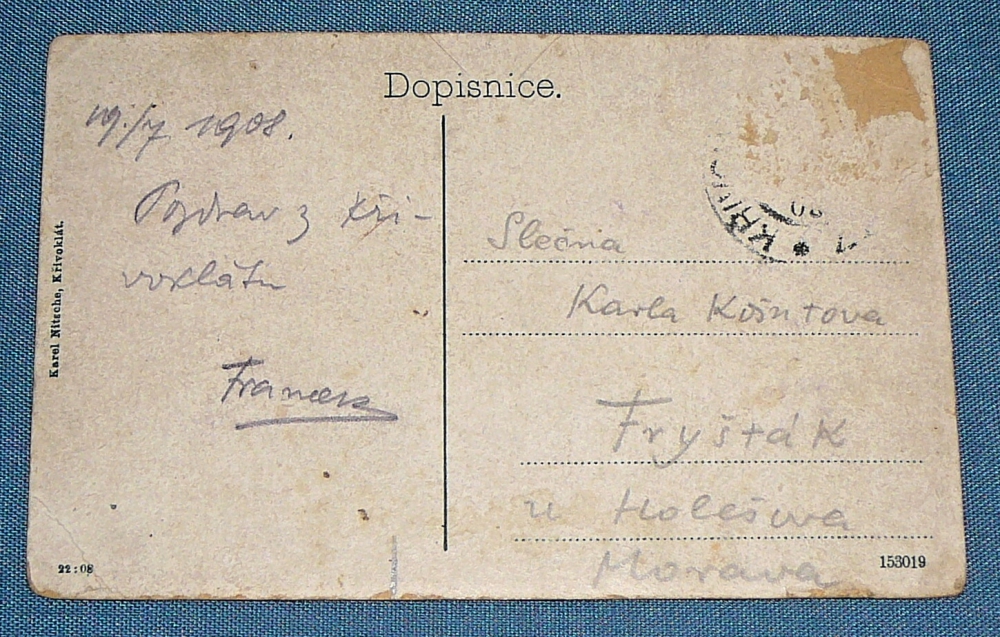 Dopisnice.
19./7 1908.
Pozdrav z Kři-
voklátu
Karel Nitsche, Křivoklát.
22:08
Slečna
Karla
Fryšták
u Holešova
Morava
153019